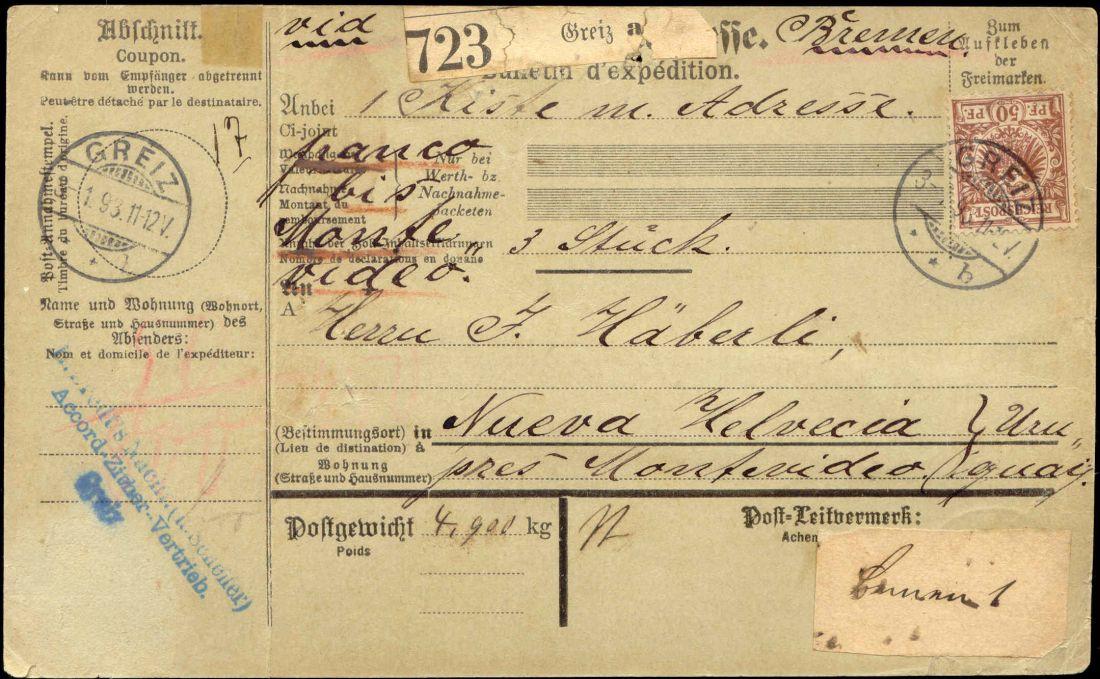 Abschnitt.
Coupon.
Kann vom Empfänger abgetrennt
werden.
Peut être détaché par le destinataire.
Post-Annahmestempel.
Timbre du bureau d'origine.
17
GREIZ
1.93.11-12V.
* h
Name und Wohnung (Wohnort,
Straße und Hausnummer) des
Absenders:
Nom et domicile de l'expéditeur:
Nachf. (A. Scheller)
Accord-Zither-Vertrieb.
Greiz
via
723
Greiz a
sse.
Bremen.
Bulletin d'expédition.
Zum
Aufkleben
der
Freimarken.
Anbei
Ci-joint
1 Kiste m. Adresse.
franco
bis
Monte
video.
Nachnahme
Montant du
remboursement
Nur bei
Werth- bz.
Nachnahme-
packeten
Nombre de déclarations en douane
3 Stück.
An
A
Herrn J. Häberli,
50 PF. PF.
REICHSPOST
GREIZ
* h
(Bestimmungsort) in
(Lieu de distination) à
Nueva Helvecia } Uru„
Wohnung
(Straße und Hausnummer)
près Montevideo. guay.
Postgewicht 4,900 kg
Poids
N
Post-Leitvermerk:
Achen
Bremen 1